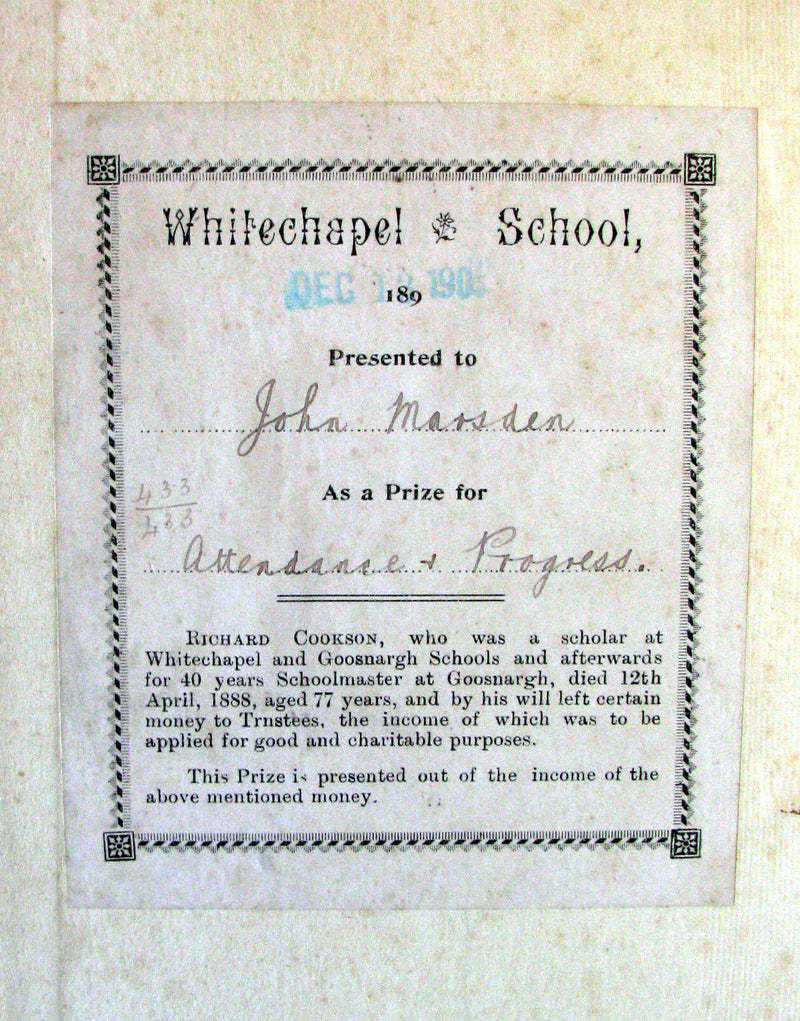 Whitechapel School,
DEC 190
189
Presented to
John Marsden
As a Prize for
433
433
Attendance & Progress.
RICHARD COOKSON, who was a scholar at
Whitechapel and Goosnargh Schools and afterwards
for 40 years Schoolmaster at Goosnargh, died 12th
April, 1888, aged 77 years, and by his will left certain
money to Trustees, the income of which was to be
applied for good and charitable purposes.
This Prize is presented out of the income of the
above mentioned money.